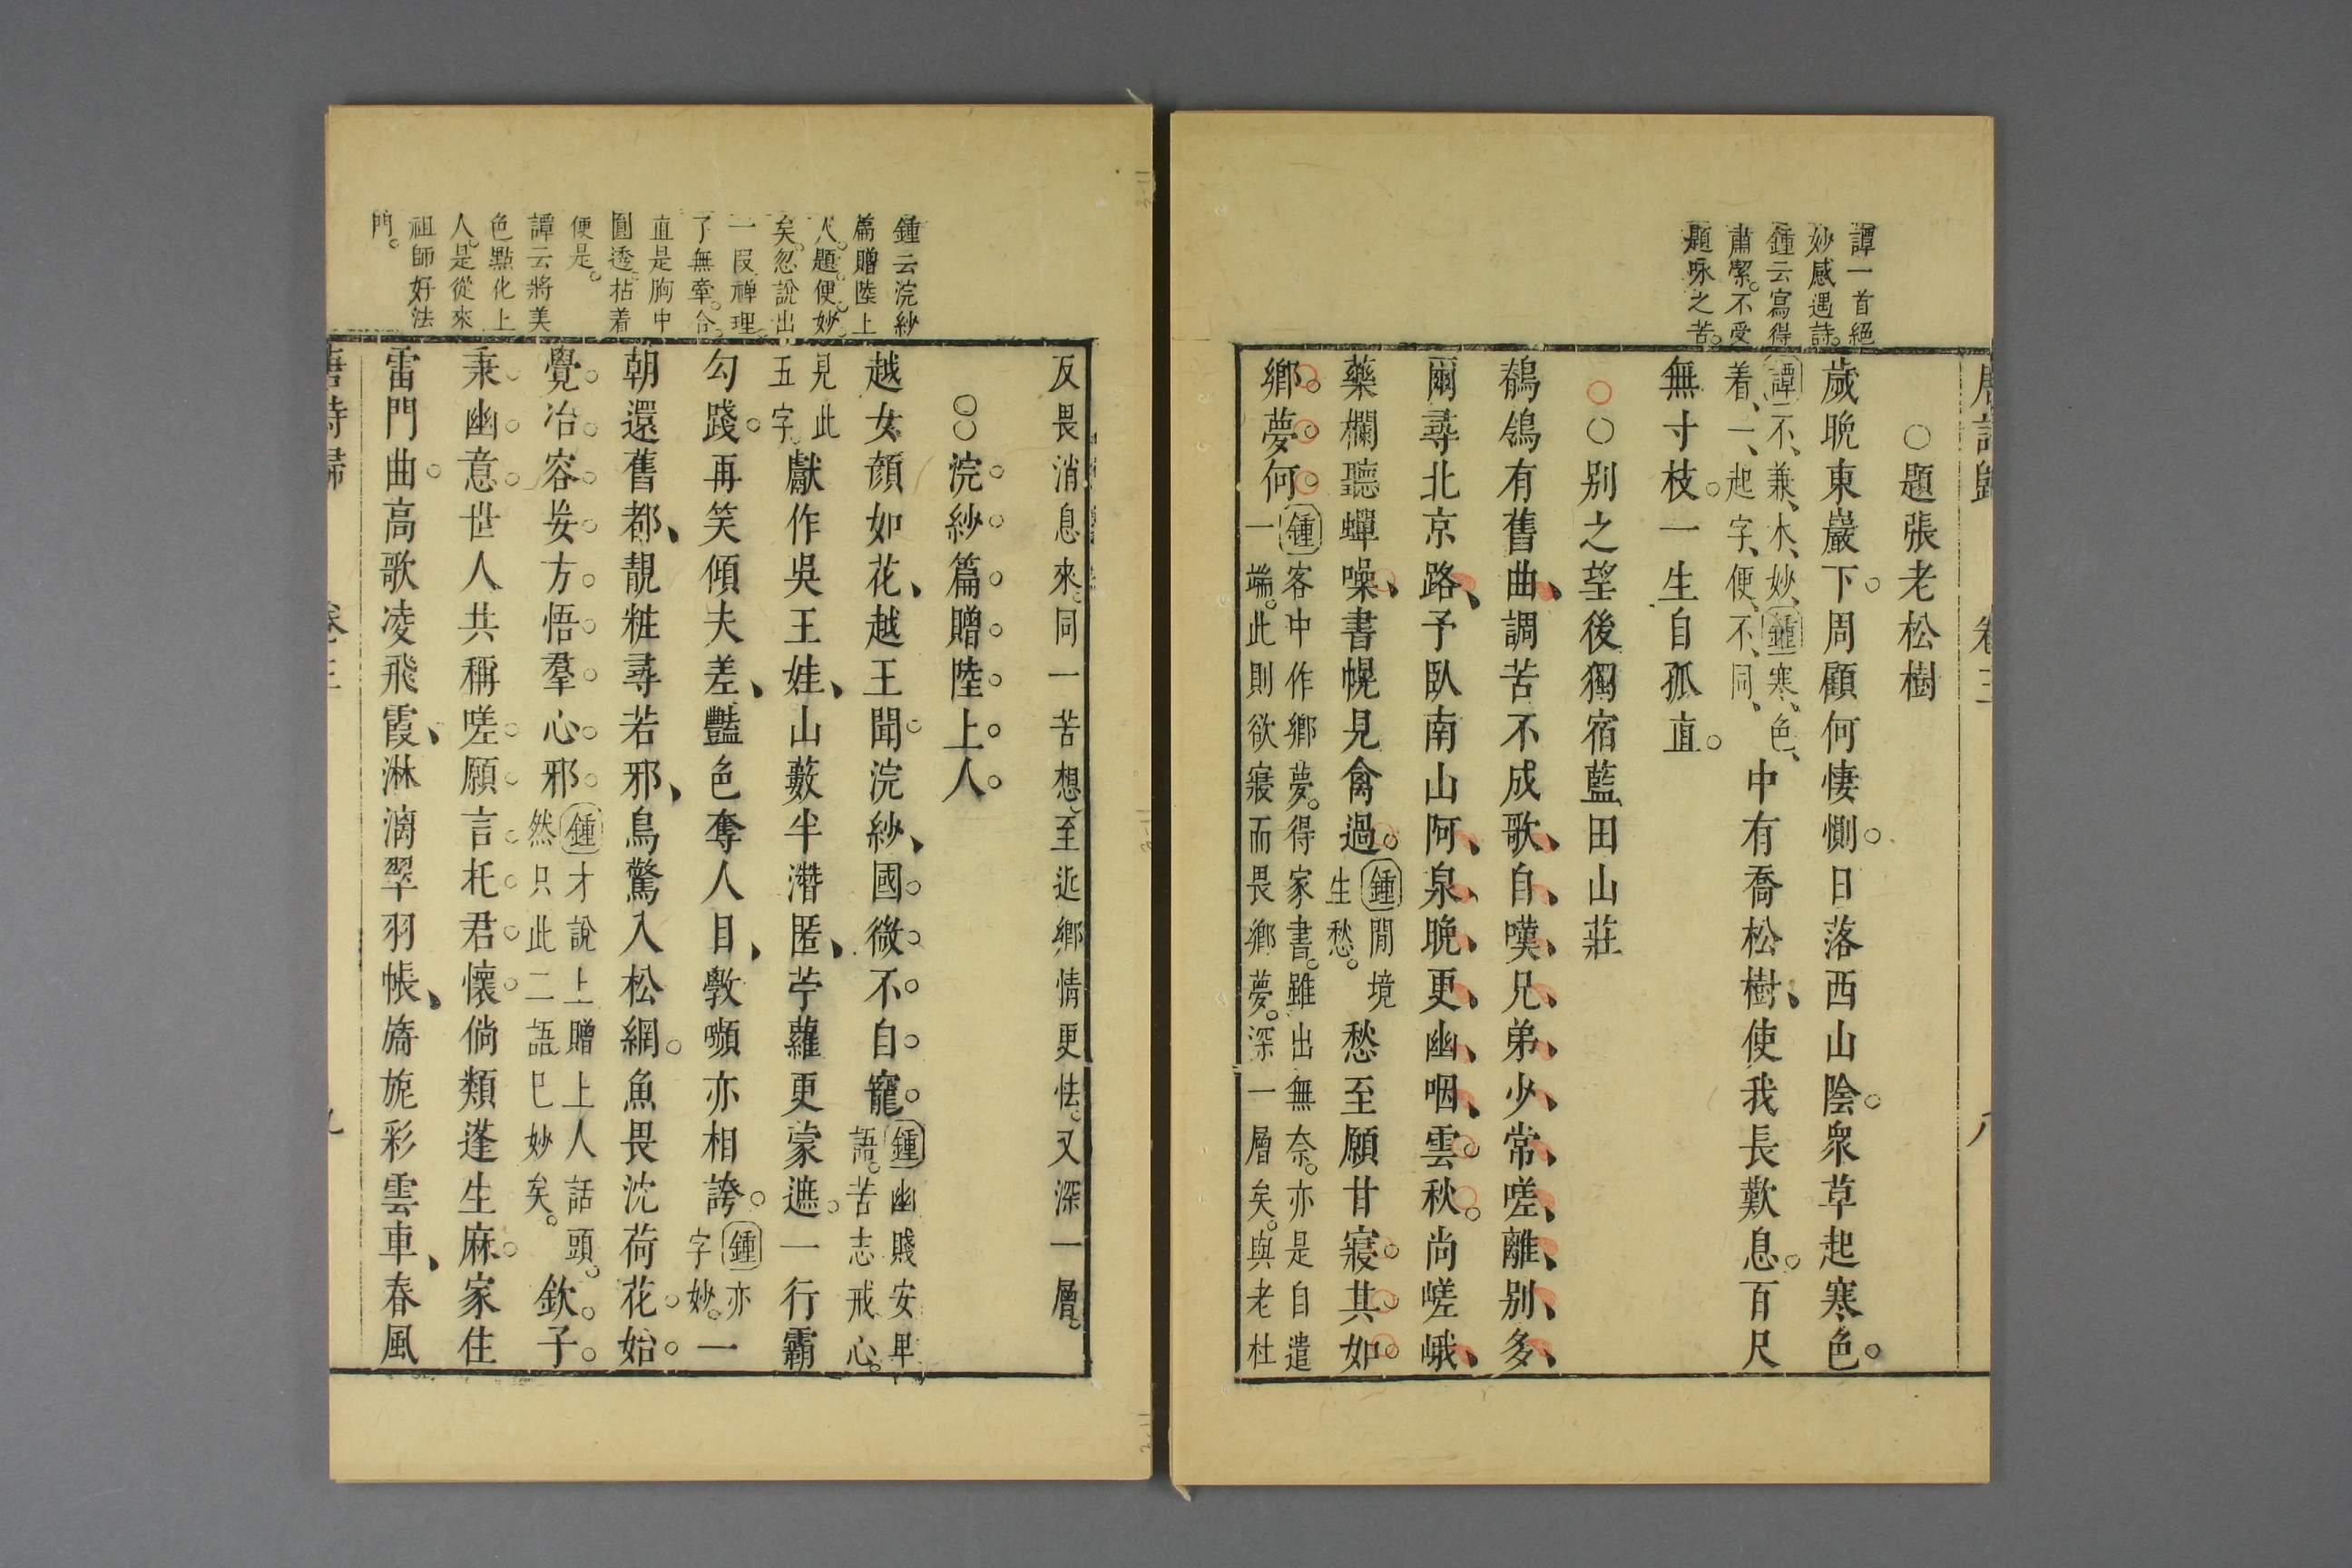 唐詩歸 卷三 八
譚一首絕
妙感遇詩。
鍾云寫得
肅潔。不受
題咏之苦。
○題張老松樹
歲晚東巖下。周顧何悽惻。日落西山陰。衆草起寒色。
譚不、兼、木、妙、鍾寒、色、
着、一、起字、便、不、同、
中有喬松樹、使我長歎息。百尺
無寸枝。一生自孤直。
○○別之望後獨宿藍田山莊
鶺鴒有舊曲、調苦不成歌、自、嘆、兄、弟、少、常、嗟、離、別、多、
爾尋北京路、予臥南山阿、泉、晚、更、幽、咽、雲。秋。尚嵯峨、
藥欄聽蟬噪、書幌見禽過。
鍾閒境
生愁。
愁至願甘寢。其。如。
鄉。夢。何。
鍾客中作鄉夢。得家書。雖出無奈。亦是自遣
一端。此則欲寢而畏鄉夢。深一層矣。與老杜
反畏消息來。同一苦想。至近鄉情更怯。又深一層。
鍾云浣紗
篇贈陸上
人。題。便妙。
矣。忽說出
一段禪理。
了無牽合。
直是胸中
圓透。拈着
便是。
譚云將美
色點化上
人。是從來
祖師好法
門。
○○浣。紗。篇。贈。陸。上。人。
越女顏如花、越王聞。浣紗、國。微。不。自。寵。
鍾幽賤安卑
語。苦志戒心。
見此
五字。
獻作吳王娃、山藪半潛匿、苧蘿更蒙遮。一行霸
勾踐。再笑傾夫差、艷色奪人目、斆嚬亦相誇。
鍾亦
字妙。
一
朝還舊都、靚粧尋若邪、鳥驚入松網。魚畏沈荷花。始。
覺。冶。容。妄。方。悟。羣。心。邪。
鍾才說上贈上人話頭。
然只此二語已妙矣。
欽。子。
秉。幽。意。世人共稱嗟。願。言。托。君。懷。倘類蓬生麻。家住
雷門曲。高歌凌飛霞、淋漓翠羽帳、旖旎彩雲車、春風
唐詩歸 卷三 九